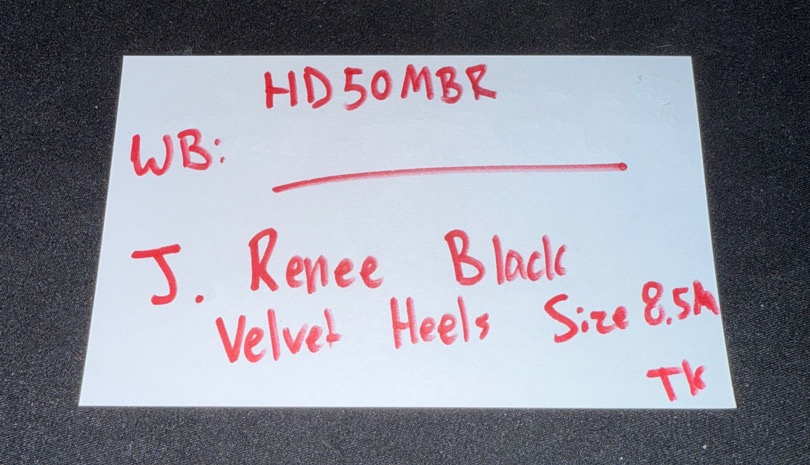 HD50MBR
WB:
J. Renee Black
Velvet Heels Size 8.5M
TK